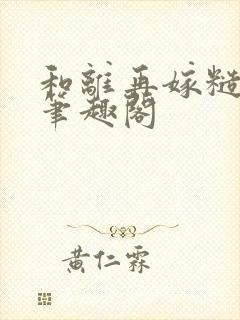 和離再嫁糙
筆趣閣
黃仁霖